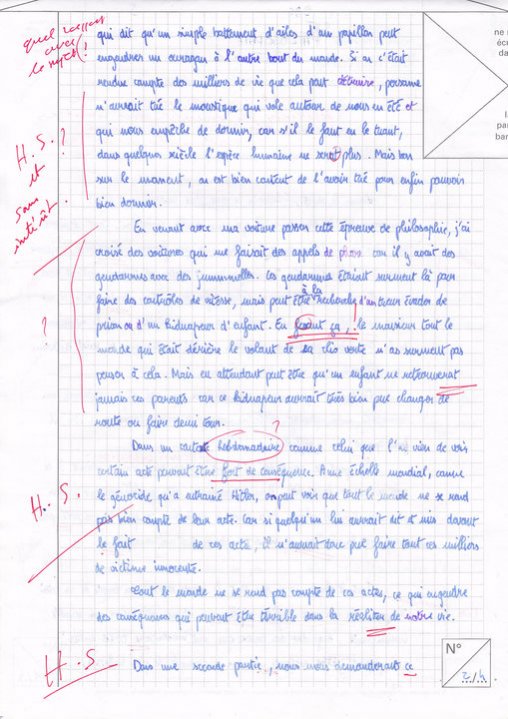 qui dit qu'un simple battement d'ailes d'un papillon peut
quel rapport avec le mythe ?
engendrer un ouragan à l'autre bout du monde. Si on c'était
rendue compte des milliers de vie que cela peut détruire, personne
n'aurait tué le moustique qui vole autour de nous en été et
qui nous empêche de dormir, car s'il le faut en le tuant,
H.S. ?
dans quelques siècle l'espèce humaine ne serait plus. Mais bon
et
sur le moment, on est bien content de l'avoir tué pour enfin pouvoir
sans intérêt.
bien dormir.
En venant avec ma voiture passer cette épreuve de philosophie, j'ai
croisé des voitures qui me faisait des appels de phare car il y avait des
gendarmes avec des jummelles. Ces gendarmes étaient surment là pour
faire des contrôles de vitesse, mais peut être à la recherche d'un tueur évader de
?
prison ou d'un kidnapeur d'enfant. En fesant ça, le monsieur tout le
monde qui était dérière le volant de sa clio verte n'as surment pas
penser à cela. Mais en attendant peut être qu'un enfant ne retrouverat
jamais ces parents car ce kidnapeur aurrait très bien pue changer de
route ou faire demi tour.
?
Dans un hebdomadaire comme celui que l'on vien de voir
certain acte peuvent être fort de conséquence. A une échelle mondial, comme
H.S.
le génocide qu'a entrainé Hitler, on peut voir que tout le monde ne se rend
pas bien compte de leur acte. Car si quelqu'un lui aurrait dit et mis devant
le fait de ces acte, il n'aurait donc pue faire tout ces milliers
de victime innocente.
Tout le monde ne se rend pas compte de ces actes, ce qui engendre
des conséquences qui peuvent être terrible dans la réaliter de notre vie.
H.S
Dans une seconde partie, nous nous demanderont ce
N°
2/4